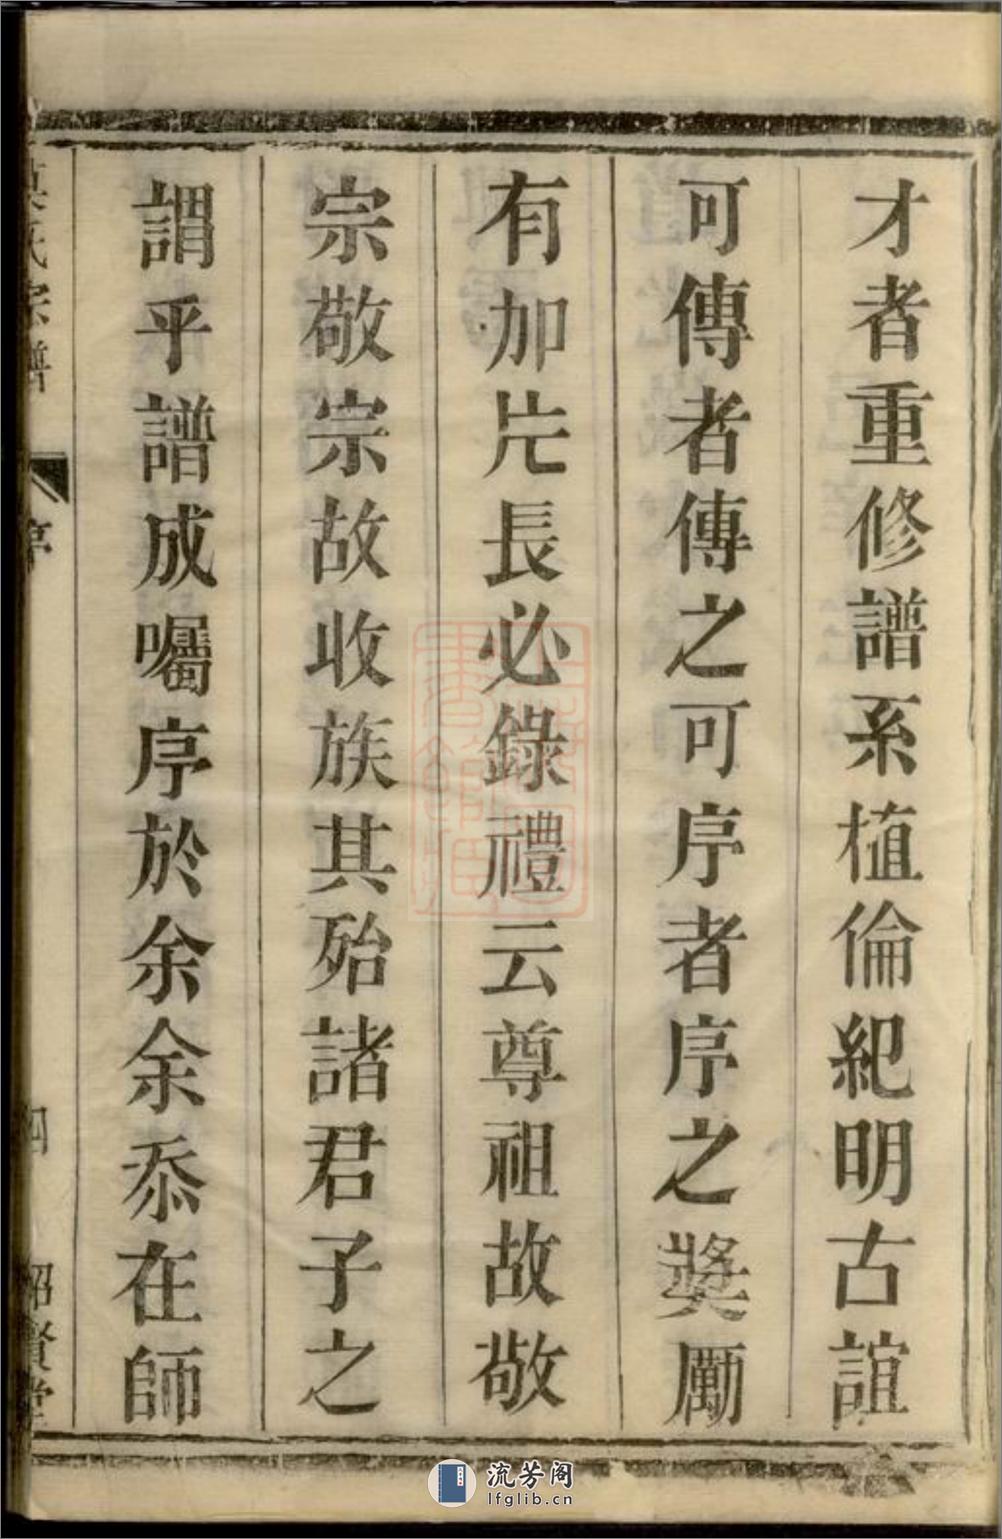 才者重修譜系植倫紀明古誼
可傳者傳之可序者序之獎勵
有加片長必錄禮云尊祖故敬
宗敬宗故收族其殆諸君子之
謂乎譜成囑序於余余忝在師
氏宗譜
序
四
賢堂
流芳阁
lfglib.cn